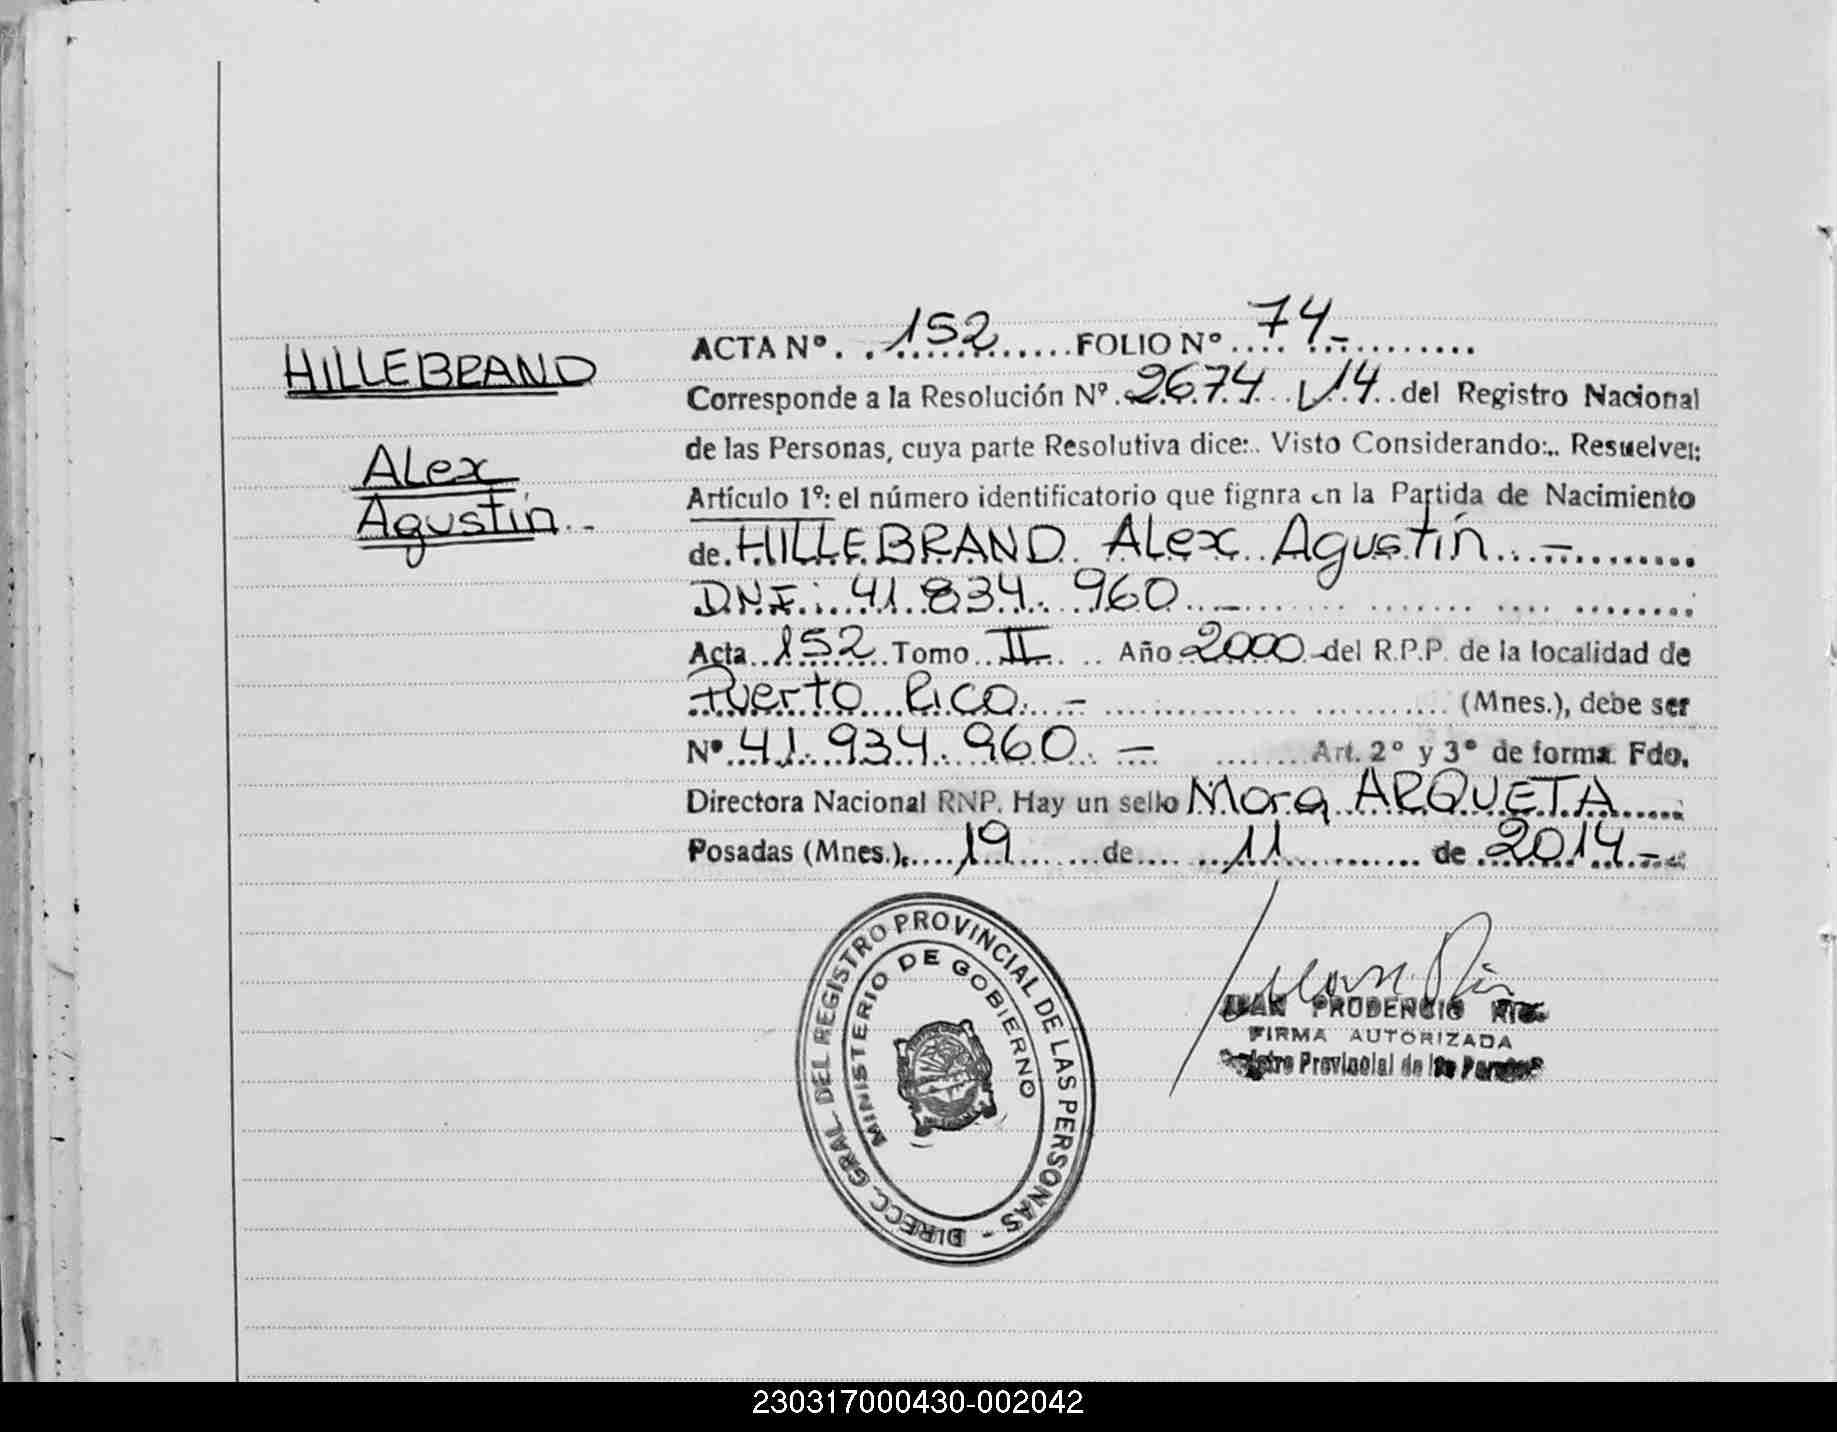 HILLEBRAND
Alex
Agustín.-
ACTA Nº. . 152 ...... FOLIO Nº .... 74.- ...........
Corresponde a la Resolución Nº. 2674. . /14. .del Registro Nacional
de las Personas, cuya parte Resolutiva dice:.. Visto Considerando:.. Resuelver:
Artículo 1º: el número identificatorio que fignra en la Partida de Nacimiento
de. HILLEBRAND. Alex. Agustín...-.........
D.N.I.: 41.834.960...-....... ....... .... ........
Acta..152.......Tomo..II.. .. Año 2000.-del R.P.P. de la localidad de
Puerto Rico.-................ ........... (Mnes.), debe ser
Nº..41.934.960. - ........Art. 2º y 3º de forma Fdo.
Directora Nacional RNP. Hay un sello Mora ARQUETA.....
Posadas (Mnes.),....19.......de.... ....11............. de 2014.-
DIRECC. GRAL. DEL REGISTRO PROVINCIAL DE LAS PERSONAS -
MINISTERIO DE GOBIERNO
JUAN PRUDENCIO
FIRMA AUTORIZADA
Provincial de las
230317000430-002042